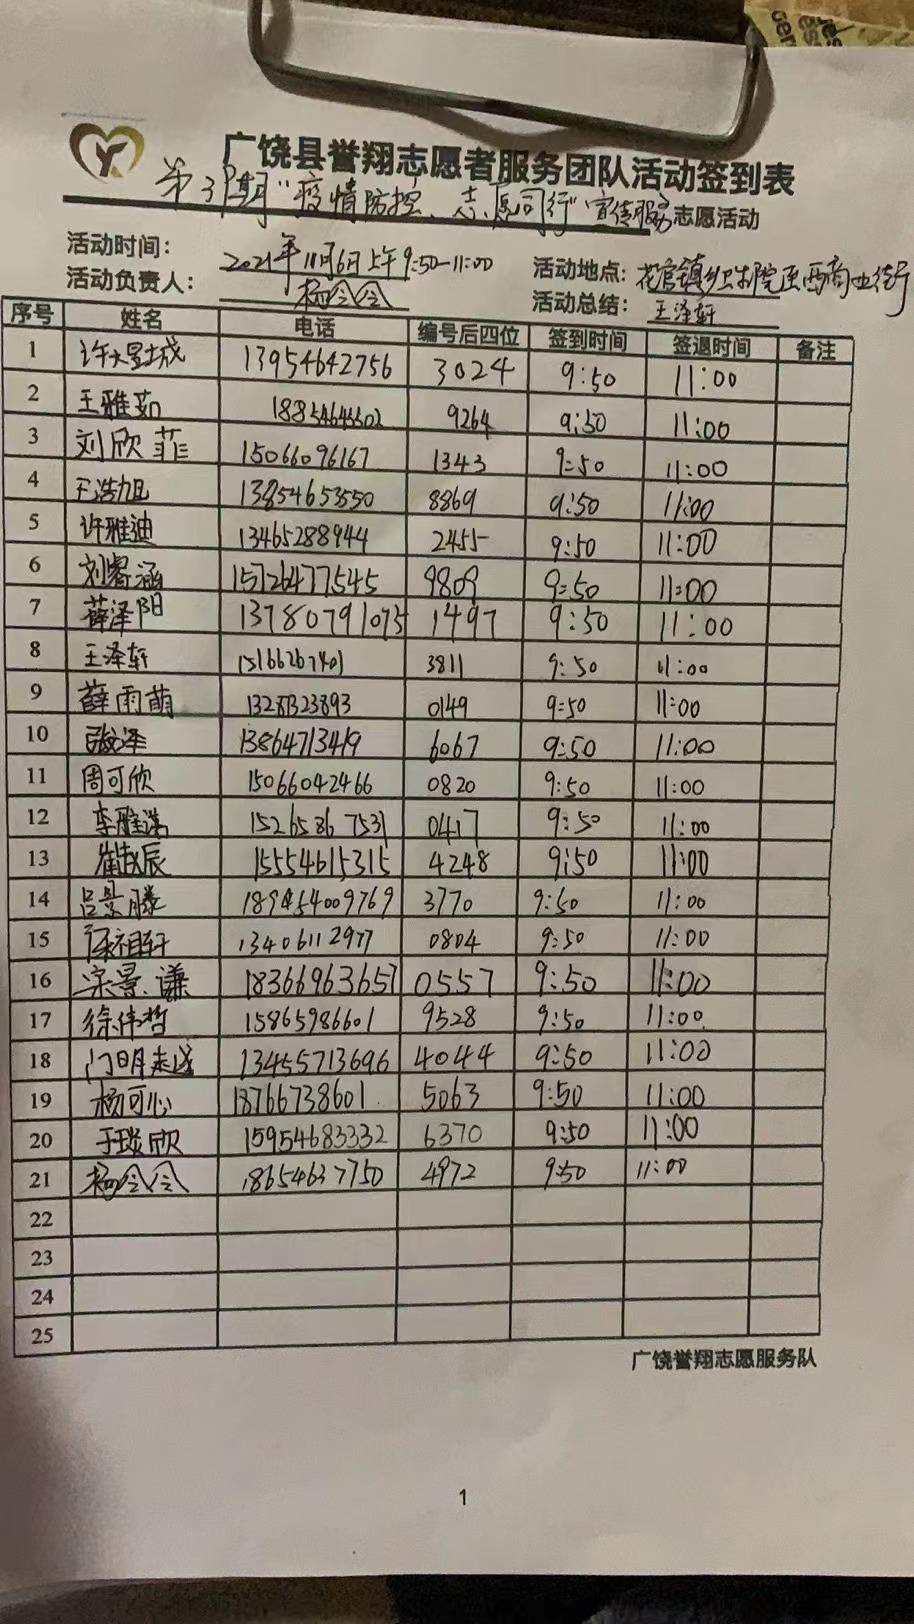 广饶县誉翔志愿者服务团队活动签到表
第3期"疫情防控、志愿同行"宣传服务志愿活动
活动时间: 2021年11月6日上午9:50-11:00 活动地点: 花官镇卫生院至西商业街
活动负责人: 杨令令 活动总结: 王泽轩
序号 姓名 电话 编号后四位 签到时间 签退时间 备注
1 13954642756 3024 9:50 11:00
2 王雅茹 9264 9:50 11:00
3 刘欣菲 15066096167 1343 9:50 11:00
4 王浩旭 13854653550 8869 9:50 11:00
5 许雅迪 13465288944 2455 9:50 11:00
6 刘睿涵 15726477545 9809 9:50 11:00
7 薛泽阳 13780791075 1497 9:50 11:00
8 王泽轩 15166267401 3811 9:50 11:00
9 薛雨萌 0149 9:50 11:00
10 13864713419 6067 9:50 11:00
11 周可欣 15066042466 0820 9:50 11:00
12 15265867531 0417 9:50 11:00
13 15554615315 4248 9:50 11:00
14 吕景滕 3770 9:50 11:00
15 13406112977 0804 9:50 11:00
16 宋景谦 18366963657 0557 9:50 11:00
17 徐伟哲 15865986601 9528 9:50 11:00
18 13455713696 4044 9:50 11:00
19 杨可心 18766738601 5063 9:50 11:00
20 于琰欣 15954683332 6370 9:50 11:00
21 杨令令 18654637750 4972 9:50 11:00
22
23
24
25
广饶誉翔志愿服务队
1